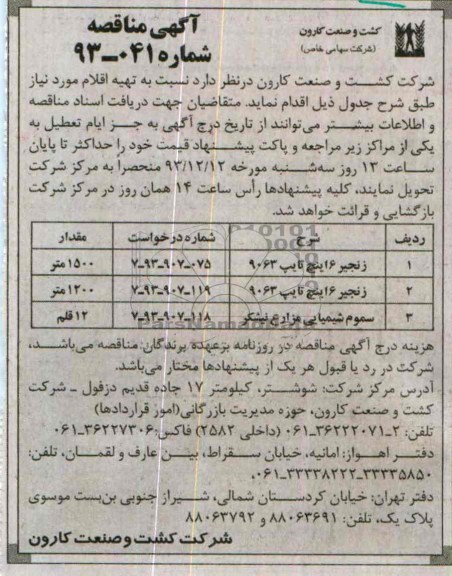 آگهی مناقصه
شماره ۰۴۱-۹۳
کشت و صنعت کارون
(شرکت سهامی خاص)
شرکت کشت و صنعت کارون درنظر دارد نسبت به تهیه اقلام مورد نیاز
طبق شرح جدول ذیل اقدام نماید. متقاضیان جهت دریافت اسناد مناقصه
و اطلاعات بیشتر می‌توانند از تاریخ درج آگهی به جز ایام تعطیل به
یکی از مراکز زیر مراجعه و پاکت پیشنهاد قیمت خود را حداکثر تا پایان
ساعت ۱۳ روز سه‌شنبه مورخه ۹۳/۱۲/۱۲ منحصراً به مرکز شرکت
تحویل نمایند، کلیه پیشنهادها رأس ساعت ۱۴ همان روز در مرکز شرکت
بازگشایی و قرائت خواهد شد.
ردیف شرح شماره درخواست مقدار
۱ زنجیر ۶ اینچ تایپ ۹۰۶۳ ۷-۹۳-۹۰۷-۰۷۵ ۱۵۰۰ متر
۲ زنجیر ۶ اینچ تایپ ۹۰۶۳ ۷-۹۳-۹۰۷-۱۱۹ ۱۲۰۰ متر
۳ سموم شیمیایی مزارع نیشکر ۷-۹۳-۹۰۷-۱۱۸ ۱۲ قلم
هزینه درج آگهی مناقصه در روزنامه برعهده برندگان مناقصه می‌باشد،
شرکت در رد یا قبول هر یک از پیشنهادها مختار می‌باشد.
آدرس مرکز شرکت: شوشتر، کیلومتر ۱۷ جاده قدیم دزفول - شرکت
کشت و صنعت کارون، حوزه مدیریت بازرگانی(امور قراردادها)
تلفن: ۲-۳۶۲۲۲۰۷۱-۰۶۱ (داخلی ۲۵۸۲) فاکس: ۳۶۲۲۷۳۰۶-۰۶۱
دفتر اهواز: امانیه، خیابان سقراط، بین عارف و لقمان، تلفن:
۳۳۳۳۵۸۵۰-۳۳۳۳۸۲۲۲-۰۶۱
دفتر تهران: خیابان کردستان شمالی، شیراز جنوبی بن‌بست موسوی
پلاک یک، تلفن: ۸۸۰۶۳۶۹۱ و ۸۸۰۶۳۷۹۲
شرکت کشت و صنعت کارون